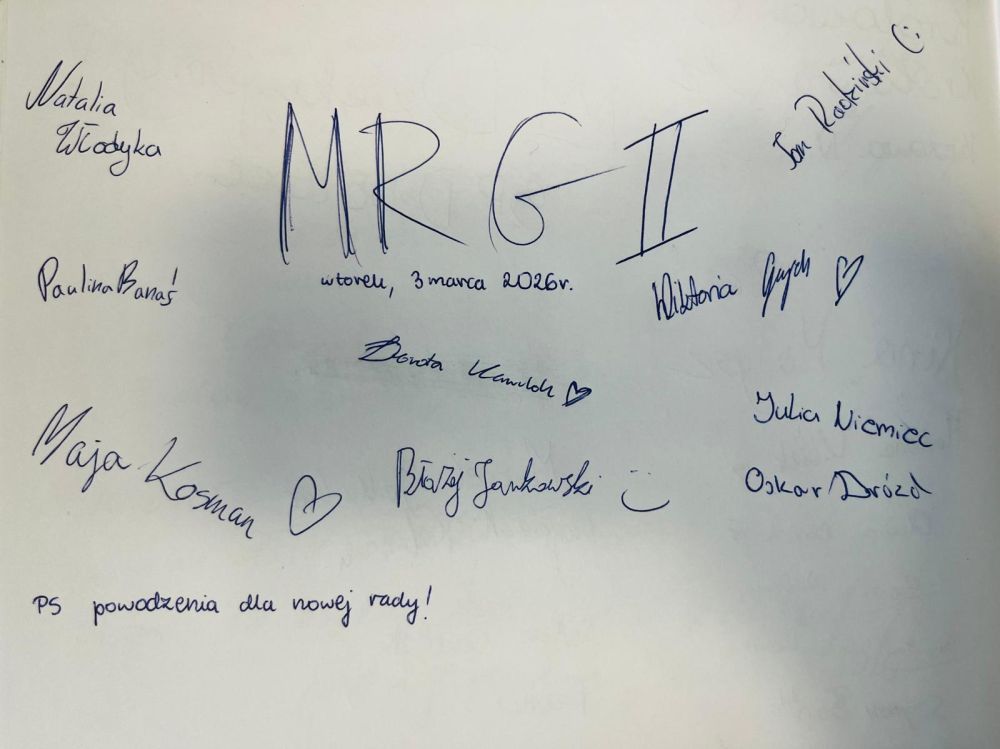 Natalia
Włodyka
MRG II
Jan
wtorek, 3 marca 2026r.
Paulina Banaś
Wiktoria
Dorota
Maja Kosman
Błażej Jankowski
Julia Niemiec
Oskar Drózd
PS powodzenia dla nowej rady!